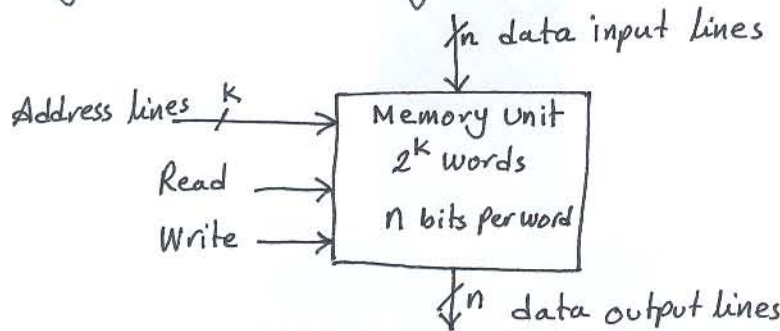 n data input lines
Address lines K
Memory Unit
2^K words
Read
n bits per word
Write
n data output lines